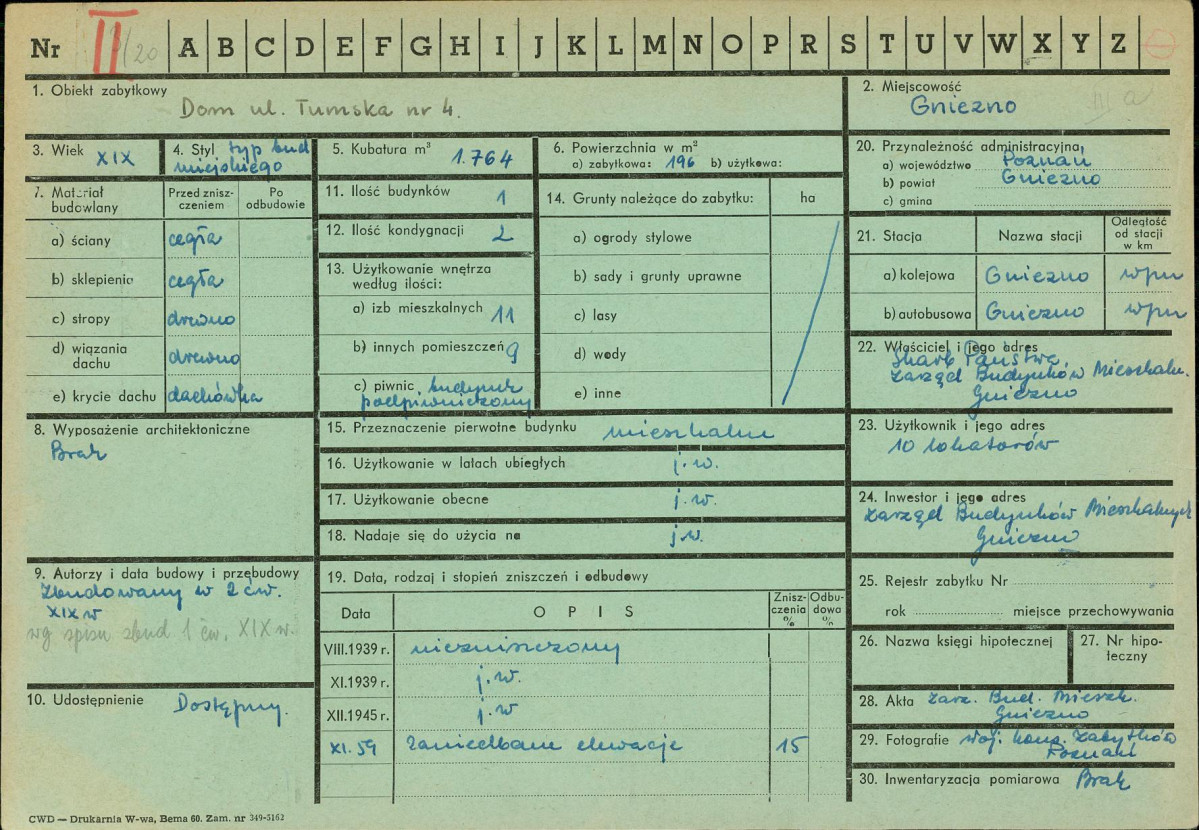 Nr II /20 A B C D E F G H I J K L M N O P R S T U V W X Y Z
1. Obiekt zabytkowy
Dom ul. Tumska nr 4.
2. Miejscowość
Gniezno
III a
3. Wiek XIX
4. Styl typ bud
miejskiego
5. Kubatura m³ 1.764
6. Powierzchnia w m²
a) zabytkowa: 196 b) użytkowa:
20. Przynależność administracyjna
a) województwo Poznań
b) powiat Gniezno
c) gmina
7. Materiał budowlany
Przed zniszczeniem
Po odbudowie
a) ściany cegła
b) sklepienia cegła
c) stropy drewno
d) wiązania dachu drewno
e) krycie dachu dachówka
11. Ilość budynków 1
12. Ilość kondygnacji 2
13. Użytkowanie wnętrza
według ilości:
a) izb mieszkalnych 11
b) innych pomieszczeń 9
c) piwnic budynek
podpiwniczony
14. Grunty należące do zabytku: ha
a) ogrody stylowe
b) sady i grunty uprawne
c) lasy
d) wody
e) inne
21. Stacja Nazwa stacji Odległość od stacji w km
a) kolejowa Gniezno wpm
b) autobusowa Gniezno wpm
22. Właściciel i jego adres
Skarb Państwa
Zarząd Budynków Mieszkaln.
Gniezno
8. Wyposażenie architektoniczne
Brak
15. Przeznaczenie pierwotne budynku mieszkalne
16. Użytkowanie w latach ubiegłych j. w.
17. Użytkowanie obecne j. w.
18. Nadaje się do użycia na j.w.
23. Użytkownik i jego adres
10 lokatorów
24. Inwestor i jego adres
Zarząd Budynków Mieszkalnych
Gniezno
9. Autorzy i data budowy i przebudowy
Zbudowany w 2 ćw.
XIX w
wg spisu zbud 1 ćw. XIX w.
19. Data, rodzaj i stopień zniszczeń i odbudowy
Data O P I S Zniszczenia % Odbudowa %
VIII.1939 r. niezniszczony
XI.1939 r. j. w.
XII.1945 r. j. w
XI. 59 Zaniedbane elewacje 15
25. Rejestr zabytku Nr
rok miejsce przechowywania
26. Nazwa księgi hipotecznej
27. Nr hipoteczny
10. Udostępnienie Dostępny.
28. Akta Zarz. Bud. Mieszk.
Gniezno
29. Fotografie Woj. kons. Zabytków
Poznań
30. Inwentaryzacja pomiarowa Brak
CWD — Drukarnia W-wa, Bema 60. Zam. nr 349-5162